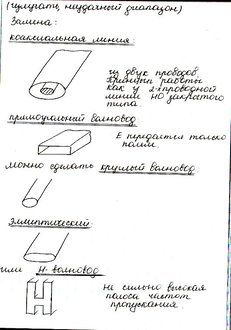 (излучать, неудачный диапазон)
Замена:
коаксиальная линия:
из двух проводов
принцип работы
как у 2-х проводной
линии НО закрытого
типа.
прямоугольный волновод
E передается только
полем.
можно сделать круглый волновод:
Эллиптический
или H-волновод
не сильно высокая
полоса частот
пропускания.